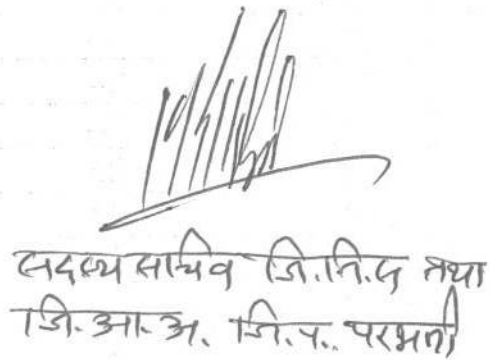 सदस्य सचिव जि.नि.स तथा
जि.आ.अ. जि.प. परभणी